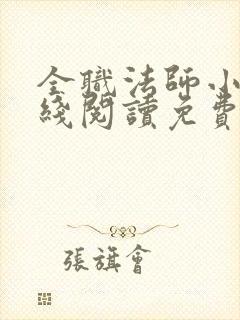 全職法師小
綫閱讀免費
張旗會